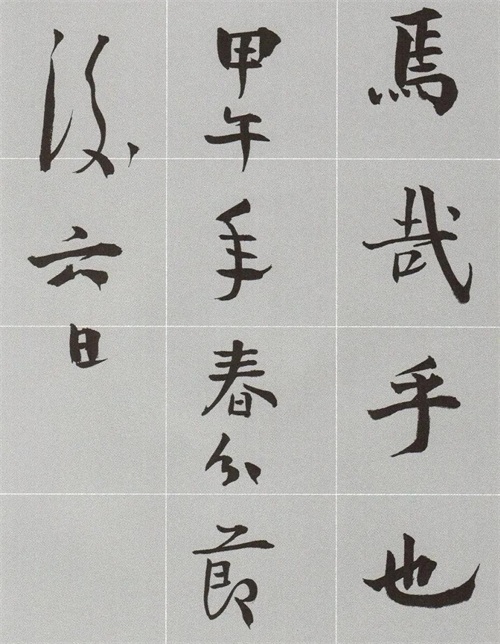 焉哉乎也
甲午年春分节
后六日